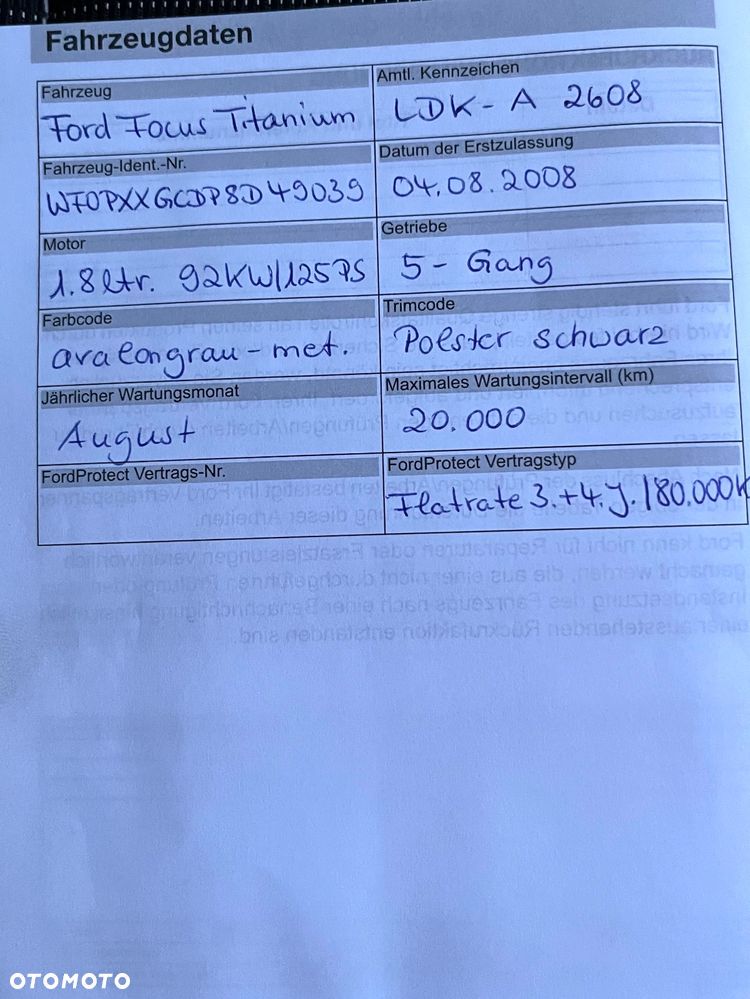 Fahrzeugdaten
Fahrzeug
Ford Focus Titanium
Amtl. Kennzeichen
LDK - A 2608
Fahrzeug-Ident.-Nr.
WF0PXXGCDP8D49039
Datum der Erstzulassung
04.08.2008
Motor
1.8 ltr. 92KW/125PS
Getriebe
5 - Gang
Farbcode
avalongrau - met.
Trimcode
Polster schwarz
Jährlicher Wartungsmonat
August
Maximales Wartungsintervall (km)
20.000
FordProtect Vertrags-Nr.
FordProtect Vertragstyp
Flatrate 3.+4.J./80.000K
OTOMOTO